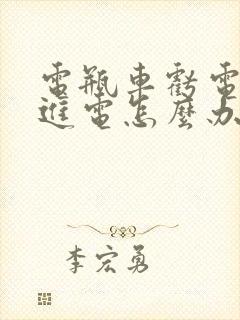 電瓶車虧電
進電怎麼办
李宏勇